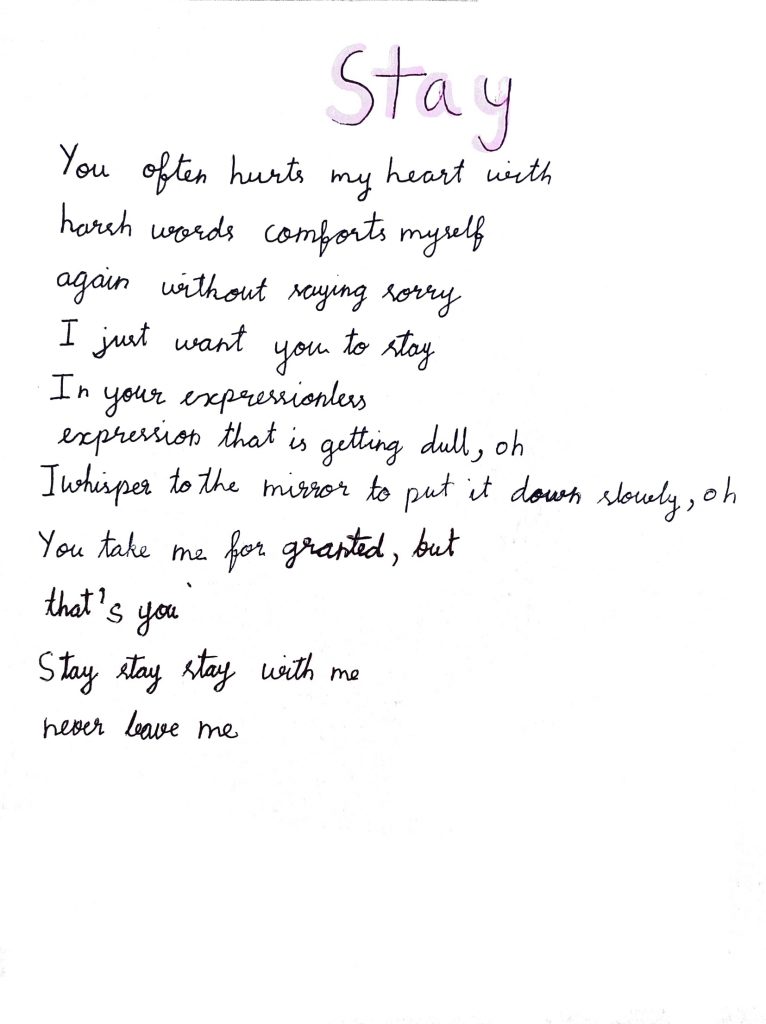 Stay
You often hurts my heart with
harsh words comforts myself
again without saying sorry
I just want you to stay
In your expressionless
expression that is getting dull, oh
I whisper to the mirror to put it down slowly, oh
You take me for granted, but
that's you
Stay stay stay with me
never leave me